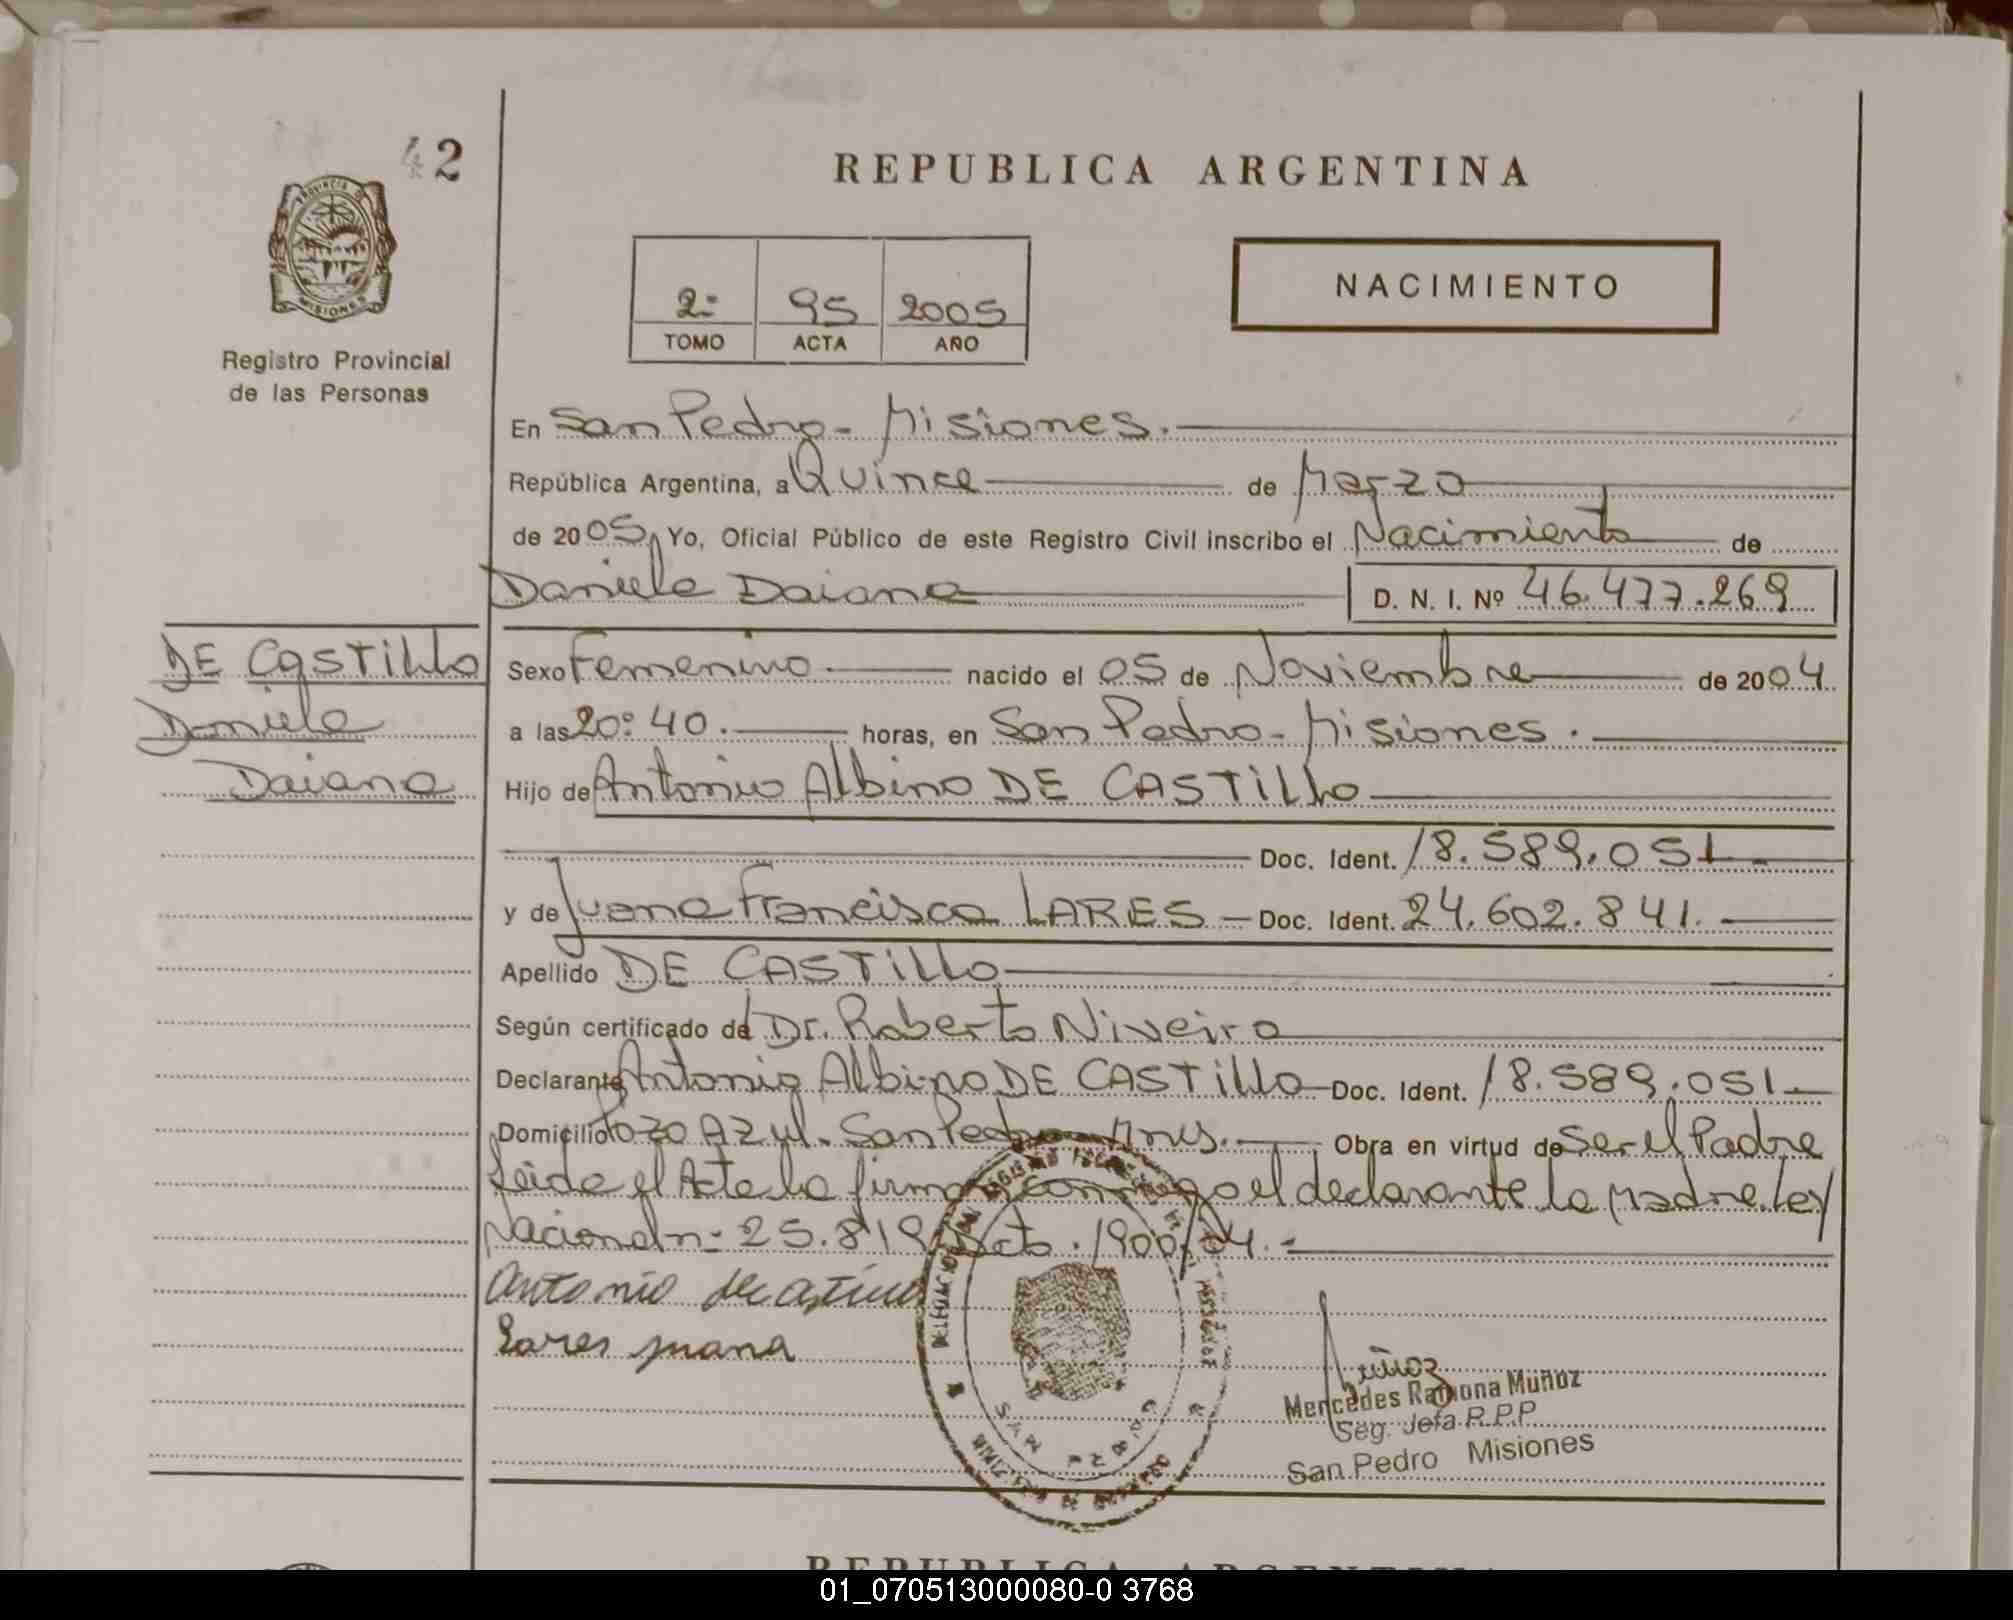 42
REPUBLICA ARGENTINA
PROVINCIA DE MISIONES
Registro Provincial
de las Personas
2º 95 2005
TOMO ACTA AÑO
NACIMIENTO
En San Pedro - Misiones.
República Argentina, a Quince de Marzo
de 2005, Yo, Oficial Público de este Registro Civil inscribo el Nacimiento de
Daniela Daiana D. N. I. Nº 46.477.269
DE CASTILLO
Daniela
Daiana
Sexo Femenino nacido el 05 de Noviembre de 2004
a las 20:40. horas, en San Pedro - Misiones.
Hijo de Antonio Albino DE CASTILLO
Doc. Ident. 18.589.051
y de Juana Francisca LARES - Doc. Ident. 24.602.841.
Apellido DE CASTILLO
Según certificado de Dr. Roberto Niveiro
Declarante Antonio Albino DE CASTILLO Doc. Ident. 18.589.051
Domicilio Pozo Azul - San Pedro - Mnes. Obra en virtud de Ser el Padre
Leida el Acta la firman conmigo el declarante la Madre. Ley
Nacional nº 25.819 Dcto. 1900/04.
Antonio
Lares juana
Muñoz
Mercedes Ramona Muñoz
Seg. Jefa R.P.P
San Pedro Misiones
REPUBLICA ARGENTINA
01_070513000080-0 3768